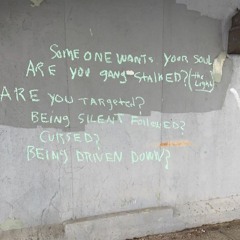 SOMEONE WANTS YOUR SOUL
ARE YOU GANG STALKED? (the Light)
ARE YOU TARGETED?
BEING SILENT FOLLOWED?
CURSED?
BEING DRIVEN DOWN?